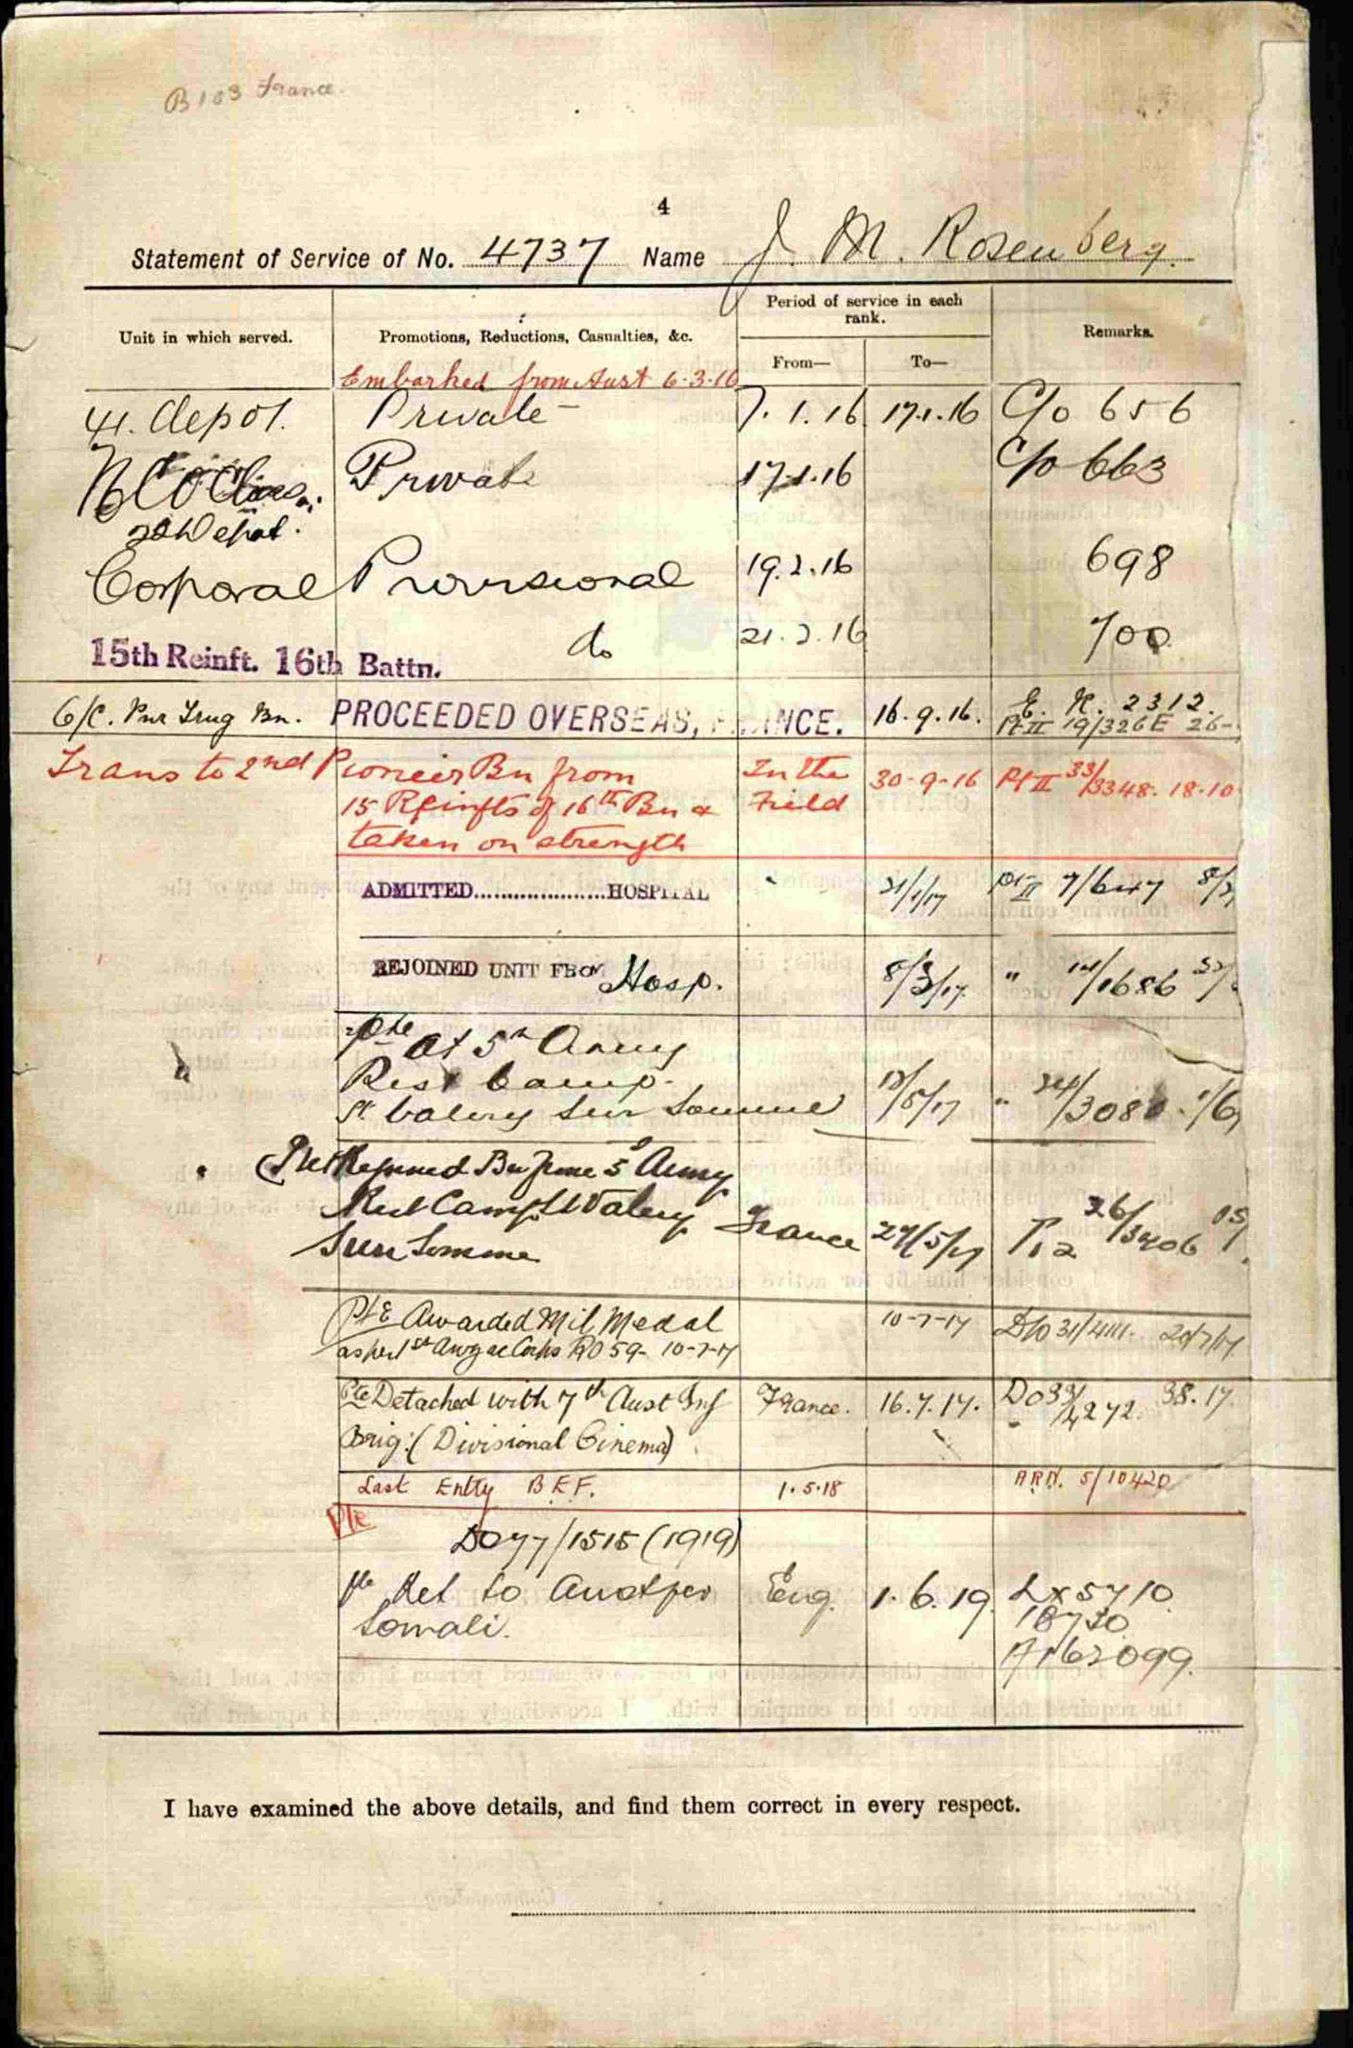 B103 France.
4
Statement of Service of No. 4737 Name J. M. Rosenberg.
Unit in which served.
Promotions, Reductions, Casualties, &c.
Period of service in each rank.
From—
To—
Remarks.
Embarked from Aust 6-3-16
41. depot. Private 7.1.16 17.1.16 C/o 656
N C O Class. Private 17.1.16 C/o 663
Depot.
Corporal Provisional 19.2.16 698
15th Reinft. 16th Battn. do 21.2.16 700
Trng Bn. PROCEEDED OVERSEAS, FRANCE. 16.9.16. E. R. 2312.
Pt II 19/326E 26-
Trans to 2nd Pioneer Bn from In the 30-9-16 Pt II 33/3348. 18.10
15 Reinfts of 16th Bn & Field
taken on strength
ADMITTED....................HOSPITAL 21/1/17 Pt II 7/647 8/2
REJOINED UNIT FROM Hosp. 8/3/17 " 14/1686
Pte At 5th Army
Rest Camp.
St Valery Sur Somme /5/17 " 24/308 1/6
Pte Rejoined Bn from 5 Army
Rest Camp St Valery France 27/5/17 26/3406
Sur Somme
Pte Awarded Mil Medal 10-7-17 D/O 31/4111. 20/7/17
as per 1st Anzac Corps RO 59- 10-7-17
Pte Detached with 7th Aust Inf France. 16.7.17. DO 33/4272 3.8.17
Brig: (Divisional Cinema)
Last Entry B E F. 1.5.18 ARN. 5/10420
Pte
DO 77/1515 (1919)
Pte Ret to Aust per Eng. 1.6.19. Lx5710
Somali. 18730
A162099.
I have examined the above details, and find them correct in every respect.